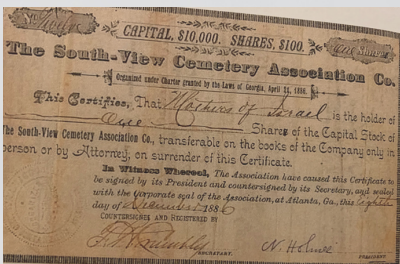 No Twelve CAPITAL, $10,000. SHARES, $100. One Share
The South-View Cemetery Association Co.
Organized under Charter granted by the Laws of Georgia, April 21, 1886.
This Certifies, That Mothers of Israel is the holder of
One Shares of the Capital Stock of
The South-View Cemetery Association Co., transferable on the books of the Company only in
person or by Attorney, on surrender of this Certificate.
In Witness Whereof, The Association have caused this Certificate to
be signed by its President and countersigned by its Secretary, and sealed
with the corporate seal of the Association, at Atlanta, Ga., this Eighth
day of December 1886
COUNTERSIGNED AND REGISTERED BY
SECRETARY. N. Holmes PRESIDENT